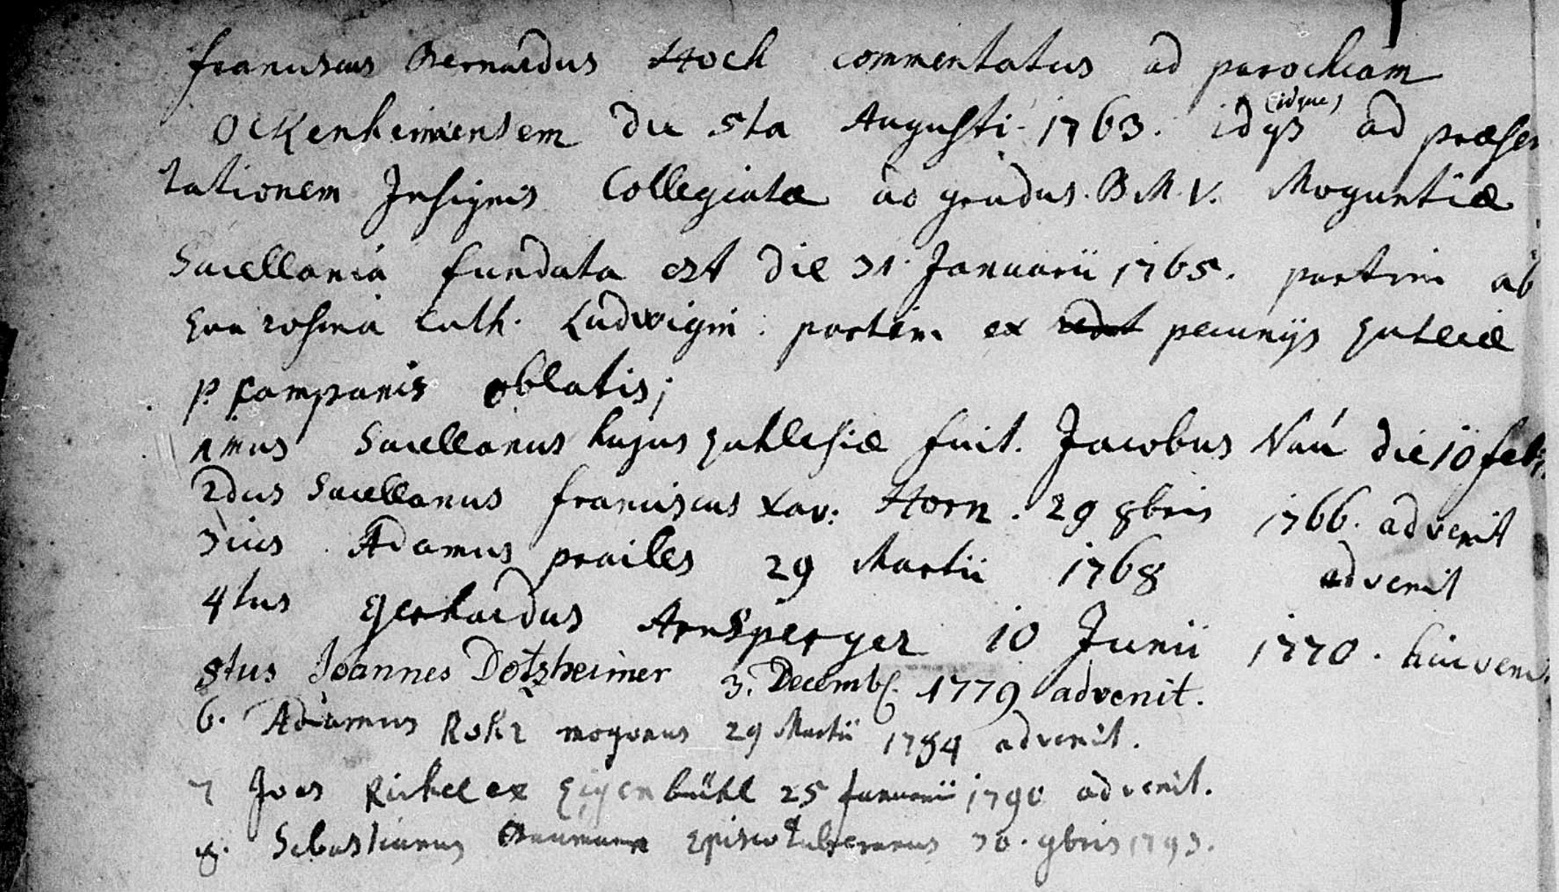 franciscus Bernardus Hoch commentatus ad parochiam
Ockenheimensem die 5ta Augusti 1763. idqs (idque) ad præsen
tationem Insignis Collegiatæ ad gradus B M V. Moguntiæ
Sacellania fundata est die 31 Januarii 1765. partim ab
Eva rosina Cath. Ludwigin: partim ex pecunijs
p Campanis oblatis;
1mus Sacellanus hujus fuit. Jacobus Nau die 10 feb
2dus Sacellanus franciscus Xav: Horn. 29 8bris 1766. advenit
3ius Adamus prailes 29 Martii 1768 advenit
4tus Gerhardus Arnsperger 10 Junii 1770. huc venit
5tus Joannes Dotzheimer 3. Decemb. 1779 advenit.
6. Adamus Rohr mogonus 29 Martii 1784 advenit.
7 Joes Rickel ex Eigenbühl 25 Januarii 1790 advenit.
8. Sebastianus Baumann 30. 9bris 1793.